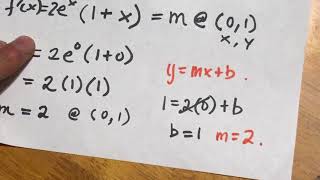 f'(x)=2eˣ(1+x) = m @ (0,1)
x, y
= 2e⁰(1+0)
= 2(1)(1)
m = 2 @ (0,1)
y=mx+b.
1=2(0)+b
b=1 m=2.